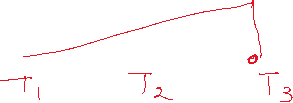 T1 T2 T3